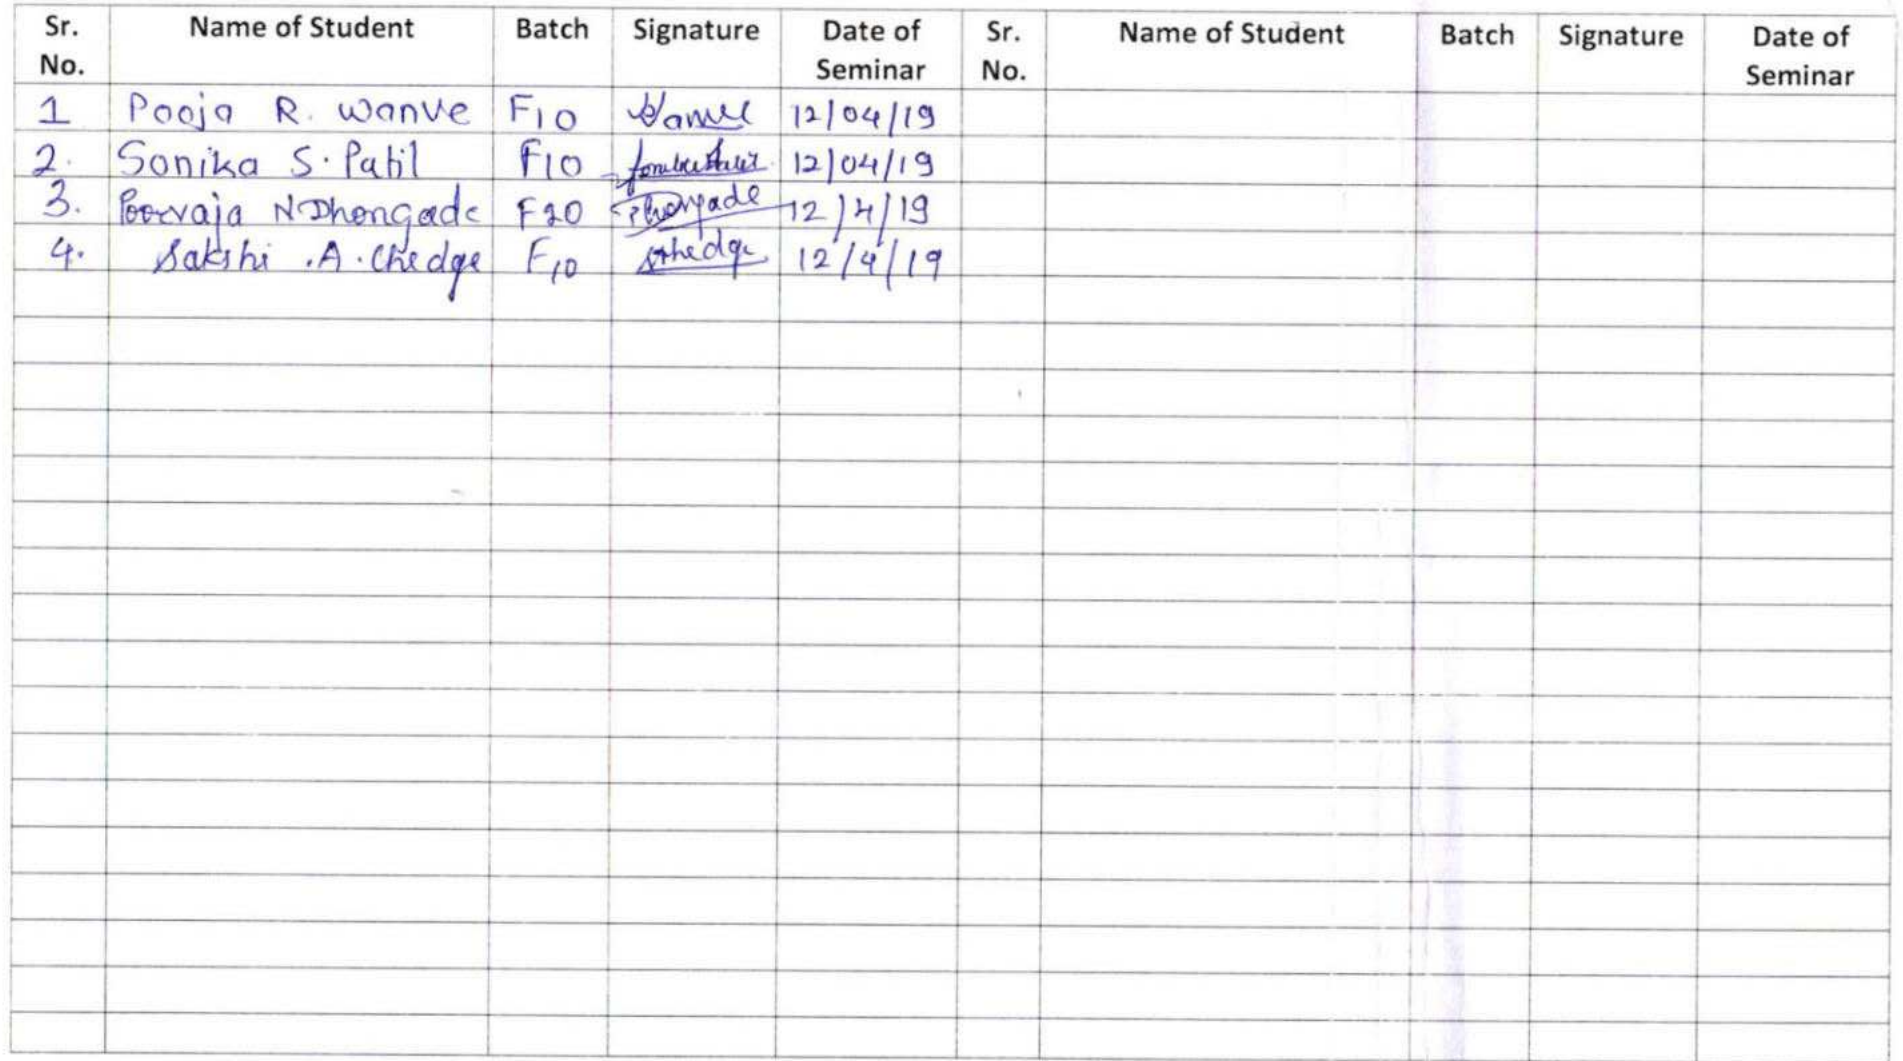 Sr. No. Name of Student Batch Signature Date of Seminar Sr. No. Name of Student Batch Signature Date of Seminar
1 Pooja R. Wanve F10 12/04/19
2. Sonika S. Patil F10 12/04/19
3. Poorvaja N Dhongade F10 Dhongade 12/4/19
4. Sakshi .A. Chedge F10 SChedge 12/4/19